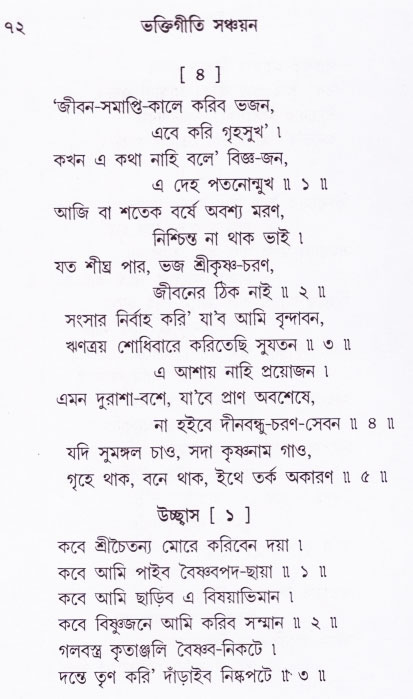 ৭২ ভক্তিগীতি সঞ্চয়ন
[ ৪ ]
‘জীবন-সমাপ্তি-কালে করিব ভজন,
এবে করি গৃহসুখ’ ।
কখন এ কথা নাহি বলে’ বিজ্ঞ-জন,
এ দেহ পতনোন্মুখ ॥ ১ ॥
আজি বা শতেক বর্ষে অবশ্য মরণ,
নিশ্চিন্ত না থাক ভাই ।
যত শীঘ্র পার, ভজ শ্রীকৃষ্ণ-চরণ,
জীবনের ঠিক নাই ॥ ২ ॥
সংসার নির্বাহ করি’ যা’ব আমি বৃন্দাবন,
ঋণত্রয় শোধিবারে করিতেছি সুযতন ॥ ৩ ॥
এ আশায় নাহি প্রয়োজন ।
এমন দুরাশা-বশে, যা’বে প্রাণ অবশেষে,
না হইবে দীনবন্ধু-চরণ-সেবন ॥ ৪ ॥
যদি সুমঙ্গল চাও, সদা কৃষ্ণনাম গাও,
গৃহে থাক, বনে থাক, ইথে তর্ক অকারণ ॥ ৫ ॥
উচ্ছ্বাস [ ১ ]
কবে শ্রীচৈতন্য মোরে করিবেন দয়া ।
কবে আমি পাইব বৈষ্ণবপদ-ছায়া ॥ ১ ॥
কবে আমি ছাড়িব এ বিষয়াভিমান ।
কবে বিষ্ণুজনে আমি করিব সম্মান ॥ ২ ॥
গলবস্ত্র কৃতাঞ্জলি বৈষ্ণব-নিকটে ।
দন্তে তৃণ করি’ দাঁড়াইব নিষ্কপটে ॥ ৩ ॥